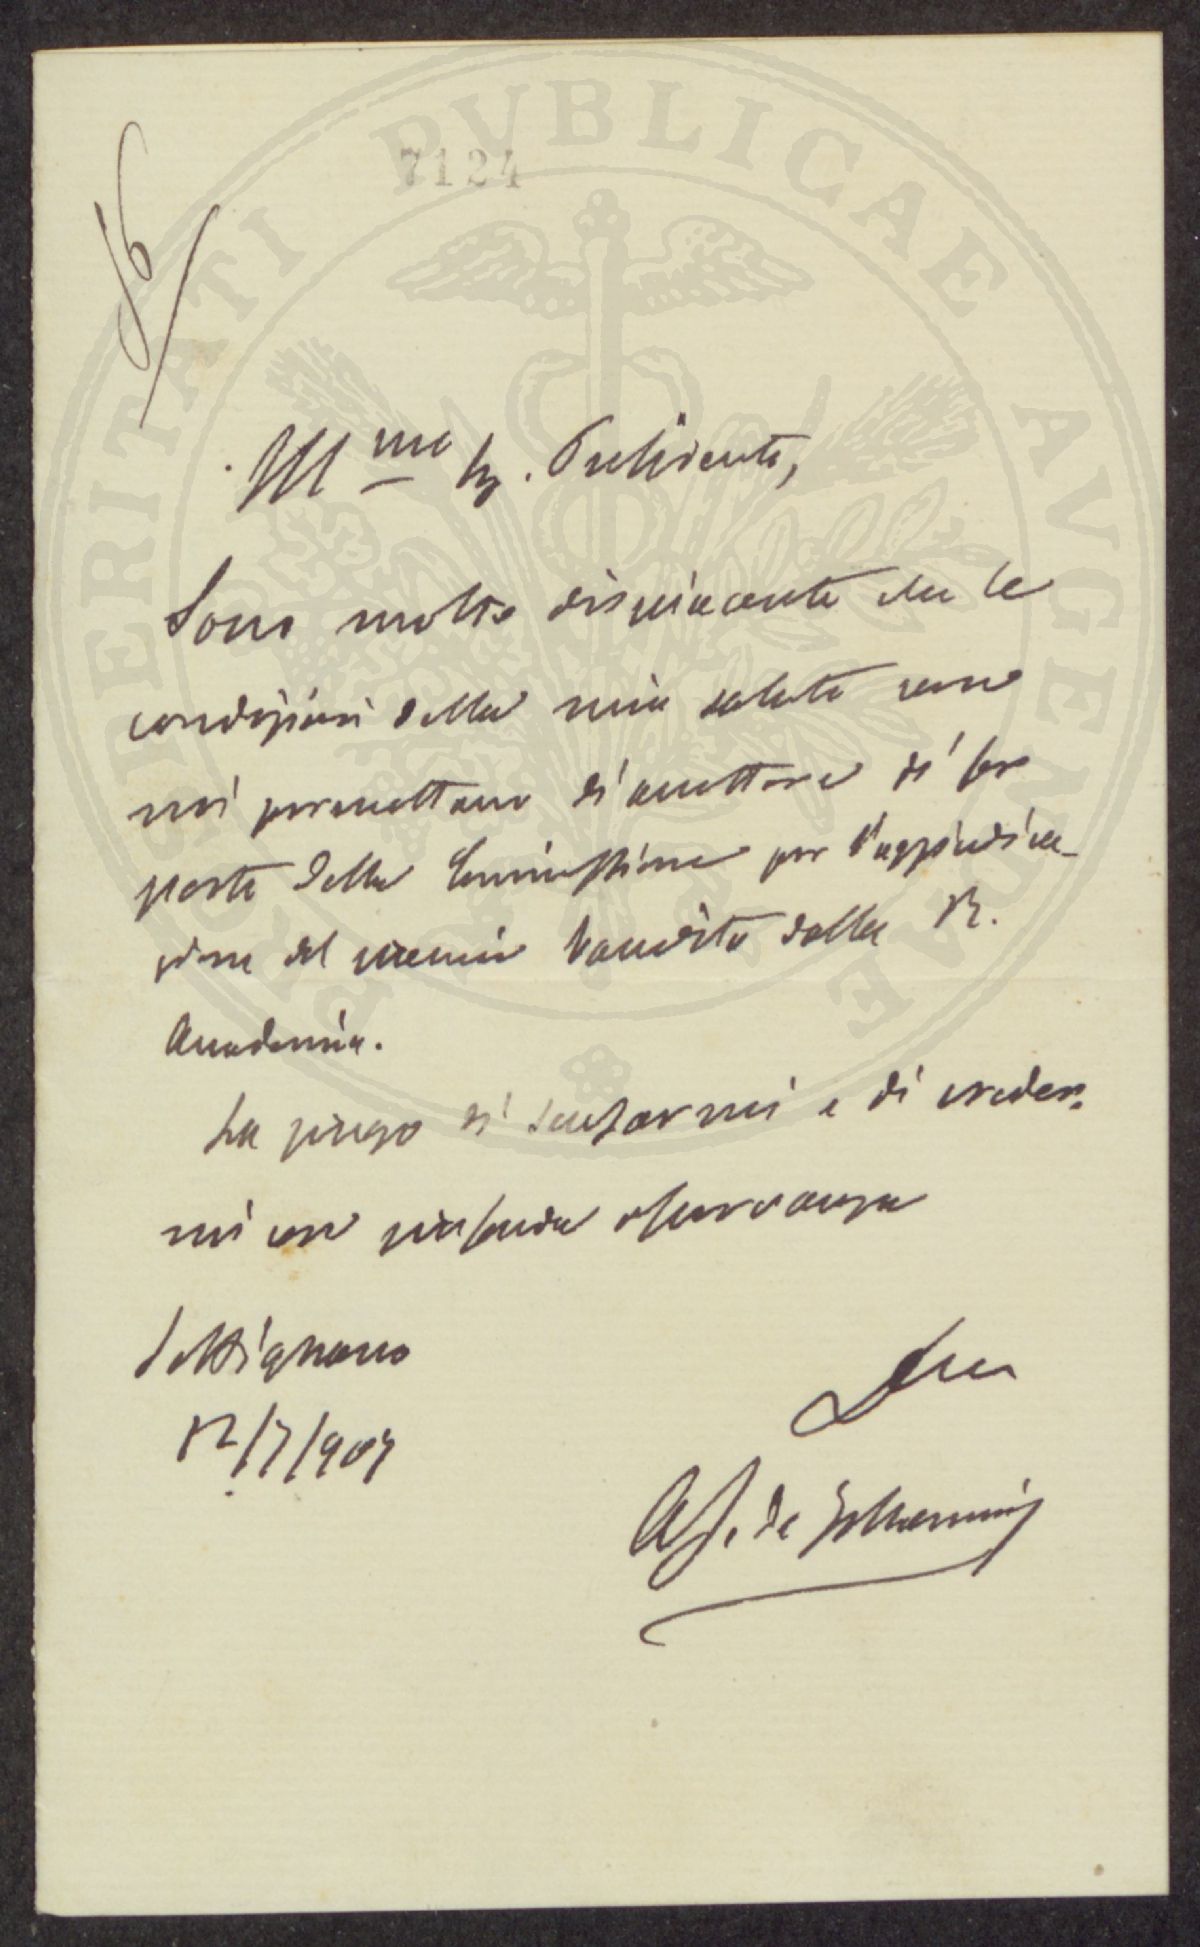 PROSPERITATI PVBLICAE AVGENDAE
7124
56
Ill.mo Sig. Presidente,
Sono molto dispiacente che le
condizioni della mia salute non
mi permettano di accettare di far
parte della Commissione per l'aggiudica-
zione del premio bandito dalla R.
Accademia.
La prego di scusarmi e di creder-
mi con profonda osservanza
Settignano
12/7/907
Suo
A. J. de Johannis